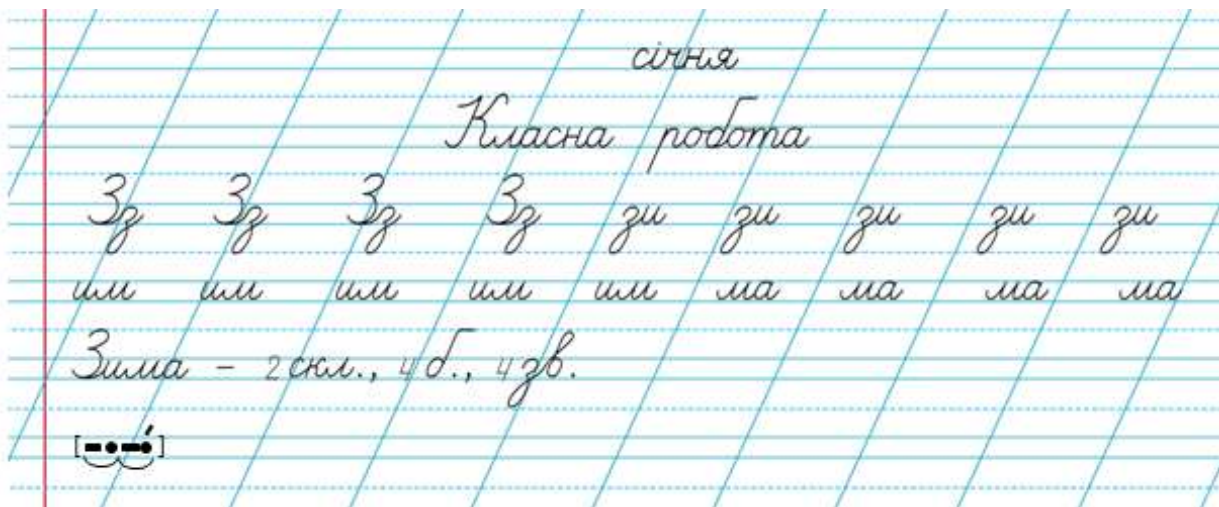 січня
Класна робота
Зз Зз Зз Зз зи зи зи зи зи
им им им им им ма ма ма ма
Зима – 2 скл., 4 б., 4 зв.
[– • – •́]